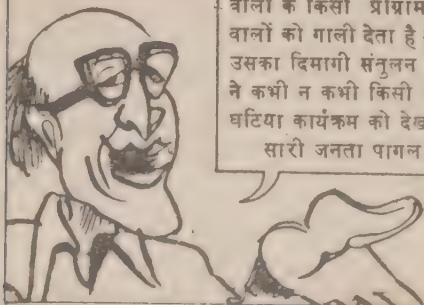 वालों के किसी प्रोग्राम
वालों को गाली देता है
उसका दिमागी संतुलन
ने कभी न कभी किसी
घटिया कार्यक्रम को देख
सारी जनता पागल